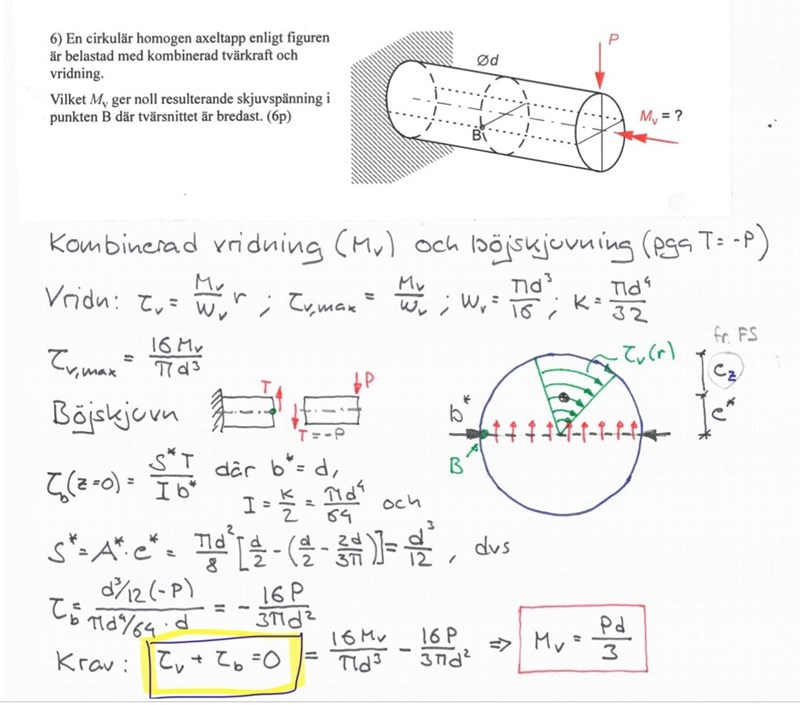 6) En cirkulär homogen axeltapp enligt figuren
är belastad med kombinerad tvärkraft och
vridning.
Vilket Mᵥ ger noll resulterande skjuvspänning i
punkten B där tvärsnittet är bredast. (6p)
Ød
P
B
Mᵥ = ?
Kombinerad vridning (Mᵥ) och böjskjuvning (pga T = -P)
Vridn: τᵥ = Mᵥ/Wᵥ r ; τᵥ,max = Mᵥ/Wᵥ ; Wᵥ = πd³/16 ; K = πd⁴/32
τᵥ,max = 16Mᵥ/πd³
Böjskjuvn
T
P
T = -P
τᵥ(r)
fr. FS
e_z
e*
b*
B
τ_b(z=0) = S*T/Ib* där b* = d,
I = K/2 = πd⁴/64 och
S* = A*·e* = πd²/8 [d/2 - (d/2 - 2d/3π)] = d³/12, dvs
τ_b = d³/12(-P)/πd⁴/64·d = - 16P/3πd²
Krav: τᵥ + τ_b = 0 = 16Mᵥ/πd³ - 16P/3πd² ⇒ Mᵥ = Pd/3